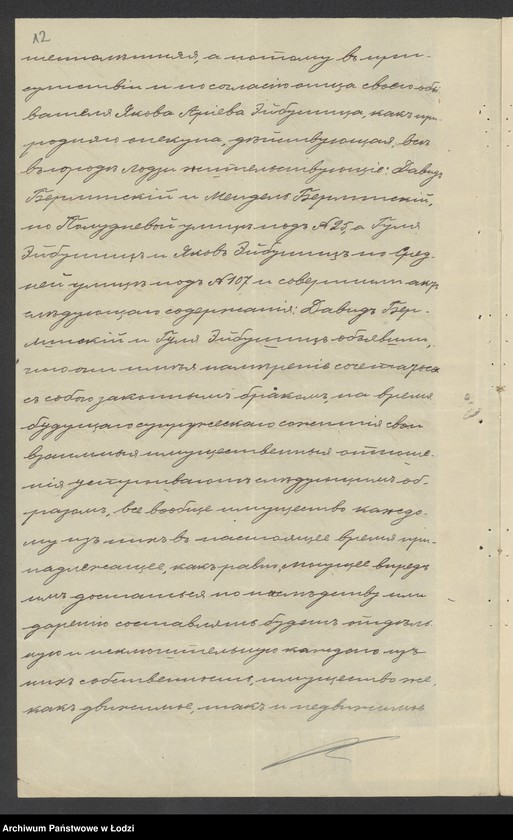 12
шеннолѣтняя, а потому въ при-
сутствіи и по согласію отца своего обы
вателя Якова Аріева Эйбушица, какъ при
роднаго опекуна, дѣйствующая, всѣ
въ городѣ Лодзи жительствующіе: Давидъ
Берлинскій и Мендель Берлинскій,
по Полудневой улицѣ подъ №25, а Гуля
Эйбушицъ и Яковъ Эйбушицъ по Сред-
ней улицѣ подъ №107 и совершили актъ
слѣдующаго содержанія: Давидъ Бер-
линскій и Гуля Эйбушицъ объявили,
что они имѣя намѣреніе сочетаться
съ собою законнымъ бракомъ, на время
будущаго супружескаго сожитія свои
взаимныя имущественныя отноше-
нія устраиваютъ слѣдующимъ об-
разомъ, все вообще имущество каждо-
му изъ нихъ въ настоящее время при-
надлежащее, какъ равно, могущее впредь
имъ достаться по наслѣдству или
даренію составлять будетъ отдѣль
ную и исключительную каждаго изъ
нихъ собственность, имущество же,
какъ движимое, такъ и недвижимое
Archiwum Państwowe w Łodzi